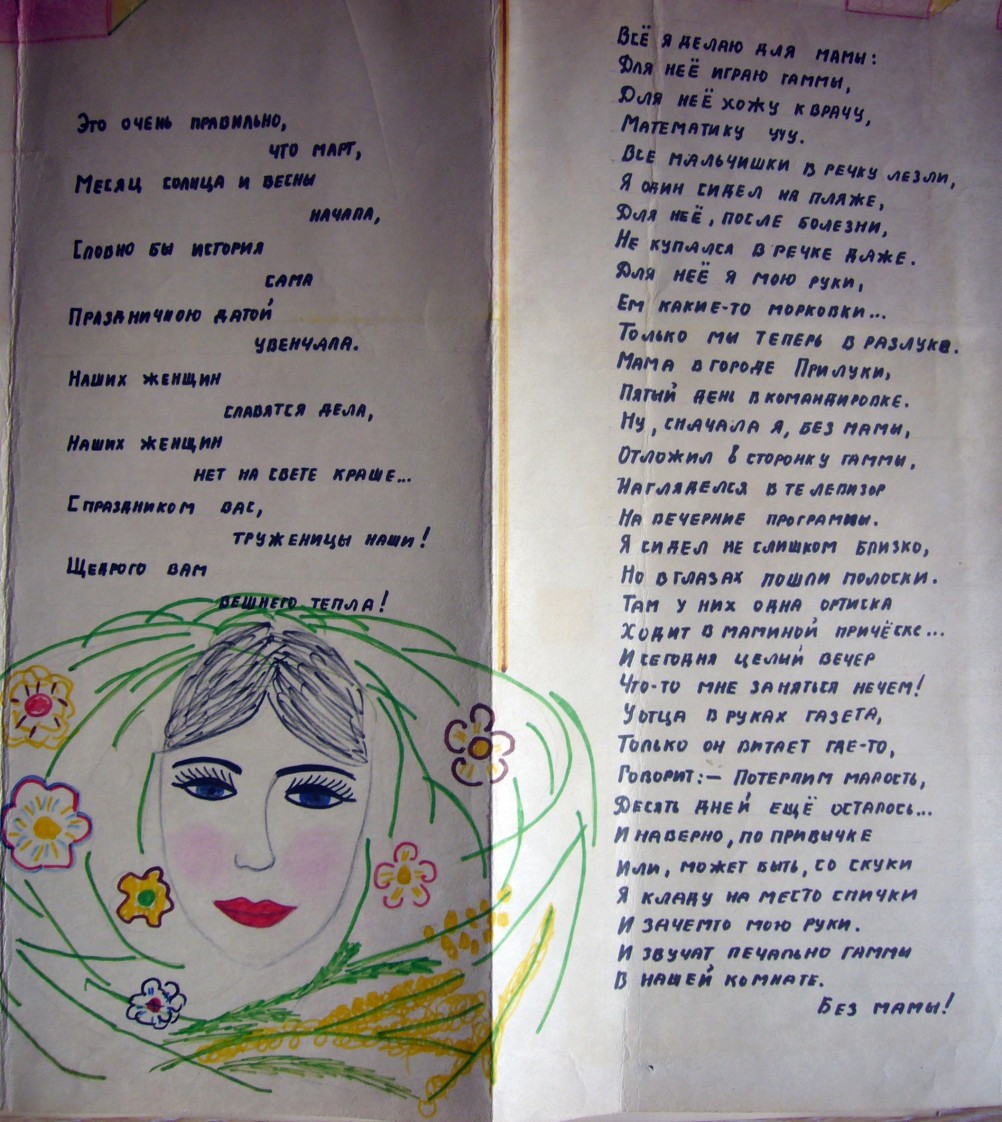 Это очень правильно,
что март,
Месяц солнца и весны
начала,
Словно бы история
сама
Праздничною датой
увенчала.
Наших женщин
славятся дела,
Наших женщин
нет на свете краше...
С праздником вас,
труженицы наши!
Щедрого вам
вешнего тепла!
Всё я делаю для мамы:
Для неё играю гаммы,
Для неё хожу к врачу,
Математику учу.
Все мальчишки в речку лезли,
Я один сидел на пляже,
Для неё, после болезни,
Не купался в речке даже.
Для неё я мою руки,
Ем какие-то морковки...
Только мы теперь в разлуке.
Мама в городе Прилуки,
Пятый день в командировке.
Ну, сначала я, без мамы,
Отложил в сторонку гаммы,
Нагляделся в телевизор
На вечерние программы.
Я сидел не слишком близко,
Но в глазах пошли полоски.
Там у них одна артиска
Ходит в маминой причёске...
И сегодня целый вечер
Что-то мне заняться нечем!
У отца в руках газета,
Только он витает где-то,
Говорит:— Потерпим малость,
Десять дней ещё осталось...
И наверно, по привычке
Или, может быть, со скуки
Я кладу на место спички
И зачемто мою руки.
И звучат печально гаммы
В нашей комнате.
Без мамы!